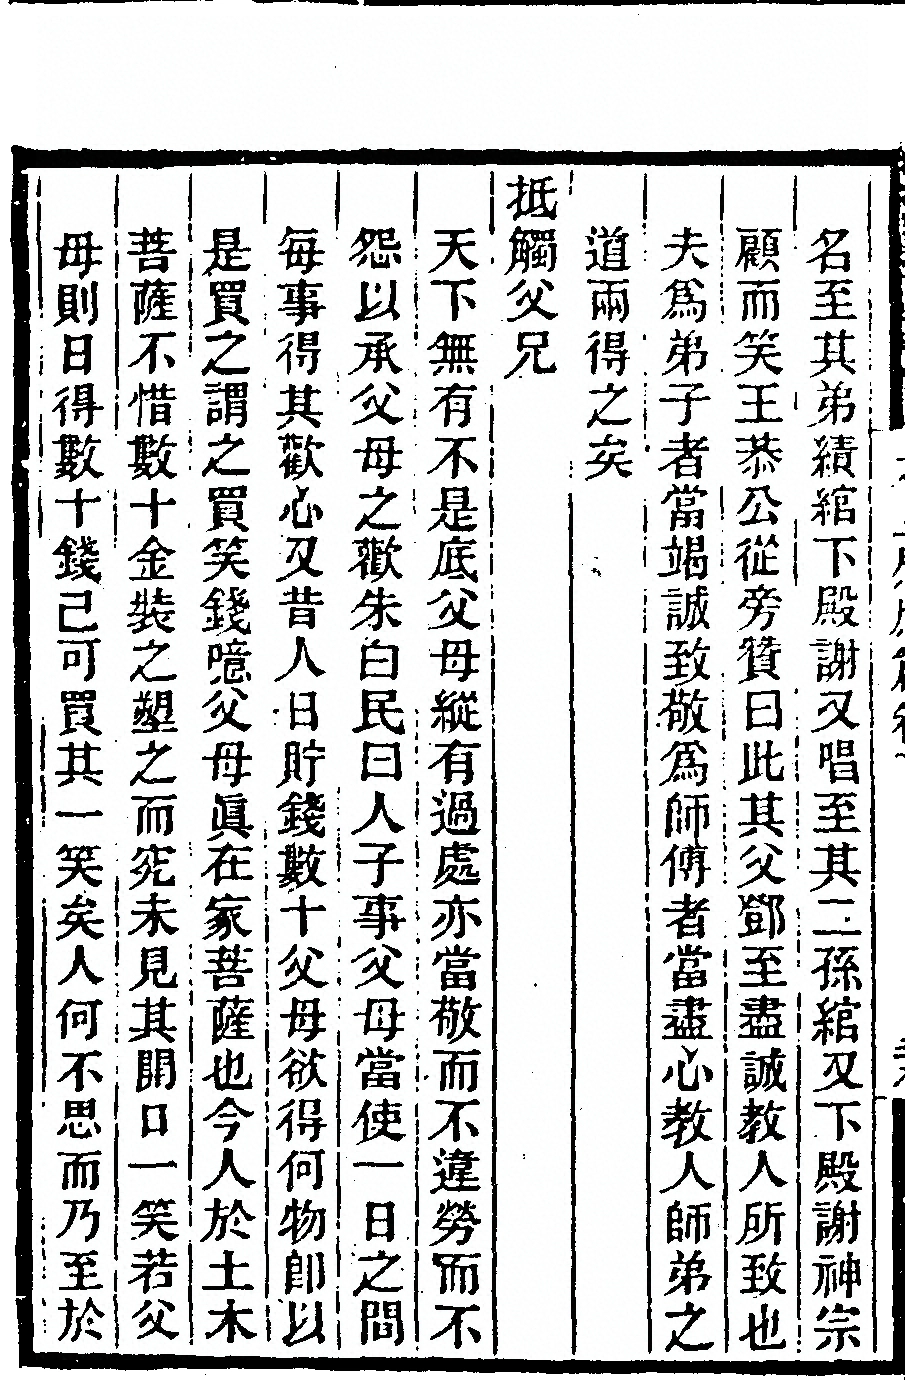 名至其弟績綰下殿謝又唱至其二孫綰又下殿謝神宗
顧而笑王恭公從旁贊曰此其父鄧至盡誠教人所致也
夫爲弟子者當竭誠致敬爲師傅者當盡心教人師弟之
道兩得之矣
抵觸父兄
天下無有不是底父母縱有過處亦當敬而不違勞而不
怨以承父母之歡朱白民曰人子事父母當使一日之間
每事得其歡心又昔人日貯錢數十父母欲得何物卽以
是買之謂之買笑錢噫父母眞在家菩薩也今人於土木
菩薩不惜數十金裝之塑之而究未見其開口一笑若父
母則日得數十錢己可買其一笑矣人何不思而乃至於